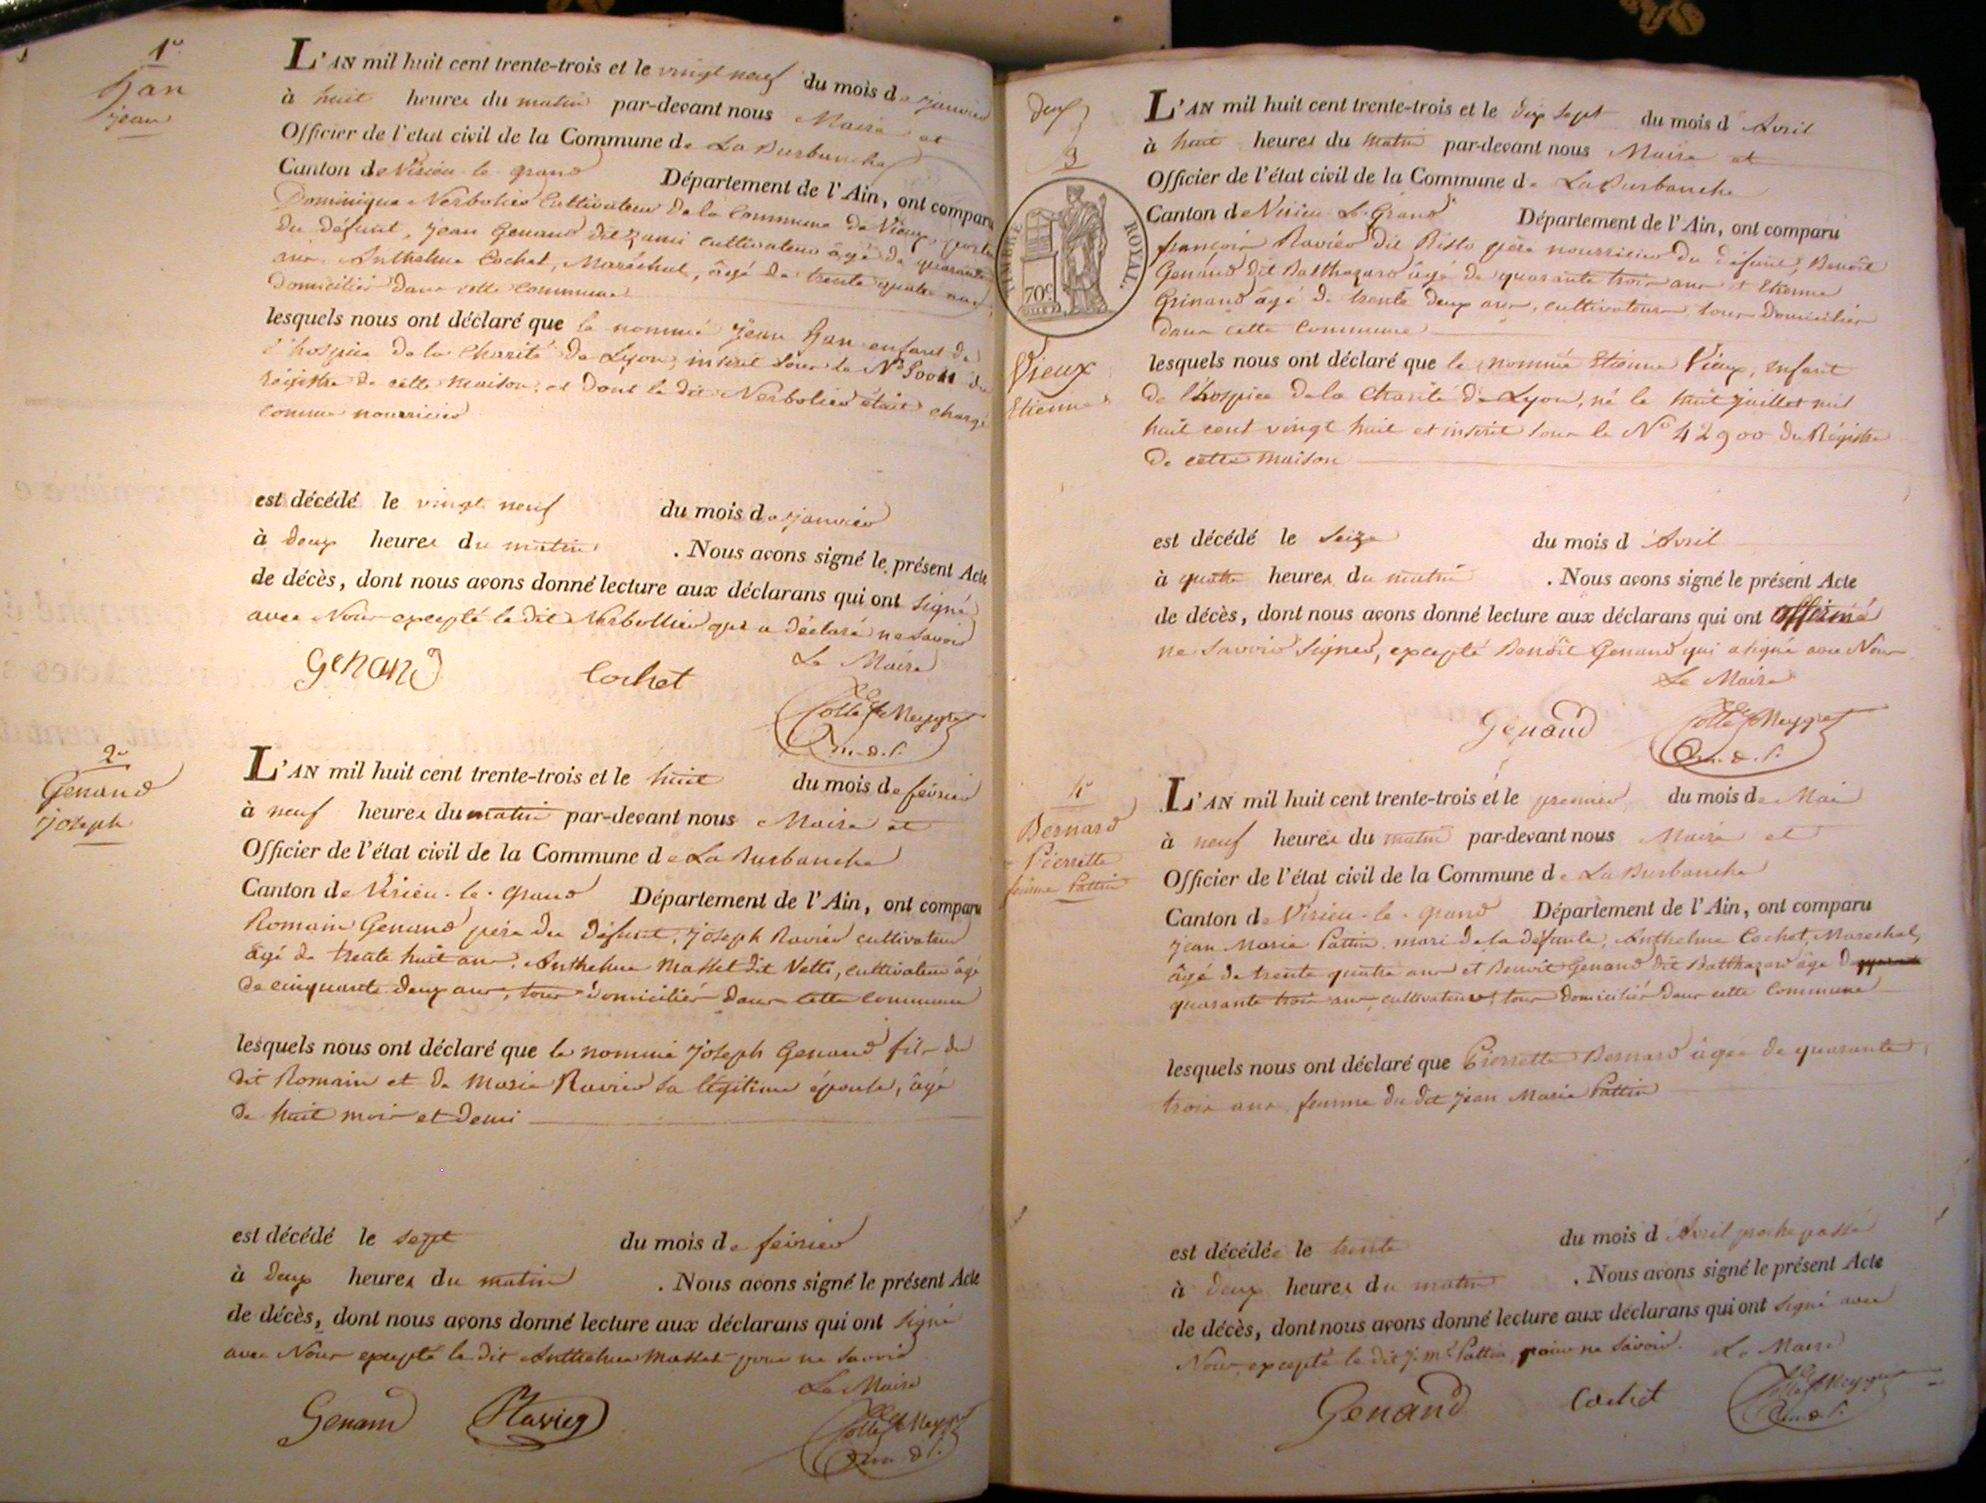 1er
Han
Jean
L'AN mil huit cent trente-trois et le vingt neuf du mois de janvier
à huit heures du matin par-devant nous Maire et
Officier de l'état civil de la Commune de La Burbanche
Canton de Virieu-le-grand Département de l'Ain, ont comparu
Dominique Nerbolier Cultivateur de la Commune de Vieux,
du défunt, jean Genand dit cultivateur âgé de quarante
ans, Anthelme Cochet, Maréchal, âgé de trente quatre ans,
domiciliés dans cette commune
lesquels nous ont déclaré que le nommé jean Han enfant de
l'hospice de la Charité de Lyon, inscrit sous le No du
régistre de cette maison, et dont le dit Nerbolier était chargé
comme nourricier
est décédé le vingt neuf du mois de janvier
à deux heures du matin . Nous avons signé le présent Acte
de décès, dont nous avons donné lecture aux déclarans qui ont signé
avec Nous excepté le dit Nerbollier qui a déclaré ne savoir
Le Maire
Genand Cochet
2e
Genand
joseph
L'AN mil huit cent trente-trois et le huit du mois de février
à neuf heures du matin par-devant nous Maire et
Officier de l'état civil de la Commune de La Burbanche
Canton de Virieu-le-grand Département de l'Ain, ont comparu
Romain Genand père du défunt, joseph Ravier cultivateur
âgé de trente huit ans, Anthelme Masset dit Vetti, cultivateur âgé
de cinquante deux ans, tous domiciliés dans cette commune
lesquels nous ont déclaré que le nommé joseph Genand fils du
dit Romain et de Marie Ravier sa légitime épouse, âgé
de huit mois et demi
est décédé le sept du mois de février
à deux heures du matin . Nous avons signé le présent Acte
de décès, dont nous avons donné lecture aux déclarans qui ont signé
avec Nous excepté le dit Anthelme Masset pour ne savoir
Le Maire
Genand Ravier
deux
3
TIMBRE ROYAL.
70c
Vieux
Etienne
L'AN mil huit cent trente-trois et le dix sept du mois d'Avril
à huit heures du matin par-devant nous Maire et
Officier de l'état civil de la Commune de La Burbanche
Canton de Virieu-le-Grand Département de l'Ain, ont comparu
françois Ravier dit Bisto père nourricier du défunt, Benoît
Genand dit Balthazard âgé de quarante trois ans et Etienne
Grinand âgé de trente deux ans, cultivateurs tous domiciliés
dans cette Commune
lesquels nous ont déclaré que le nommé Etienne Vieux, enfant
de l'hospice de la Charité de Lyon, né le huit juillet mil
huit cent vingt huit et inscrit sous le No 42900 du Régistre
de cette maison
est décédé le seize du mois d'Avril
à quatre heures du matin . Nous avons signé le présent Acte
de décès, dont nous avons donné lecture aux déclarans qui ont affirmé
ne savoir signer, excepté Benoît Genand qui a signé avec Nous
Le Maire
Genand
4e
Bernard
Pierrette
femme Pattin
L'AN mil huit cent trente-trois et le premier du mois de Mai
à neuf heures du matin par-devant nous Maire et
Officier de l'état civil de la Commune de La Burbanche
Canton de Virieu-le-grand Département de l'Ain, ont comparu
jean Marie Pattin mari de la défunte, Anthelme Cochet, Marechal,
âgé de trente quatre ans et Benoit Genand dit Balthazard âgé de
quarante trois ans, cultivateurs, tous domiciliés dans cette Commune
lesquels nous ont déclaré que Pierrette Bernard âgée de quarante
trois ans, femme du dit jean Marie Pattin
est décédée le trente du mois d'Avril proche passé
à deux heures du matin . Nous avons signé le présent Acte
de décès, dont nous avons donné lecture aux déclarans qui ont signé avec
Nous, excepté le dit j. me Pattin pour ne savoir. Le Maire
Genand Cochet